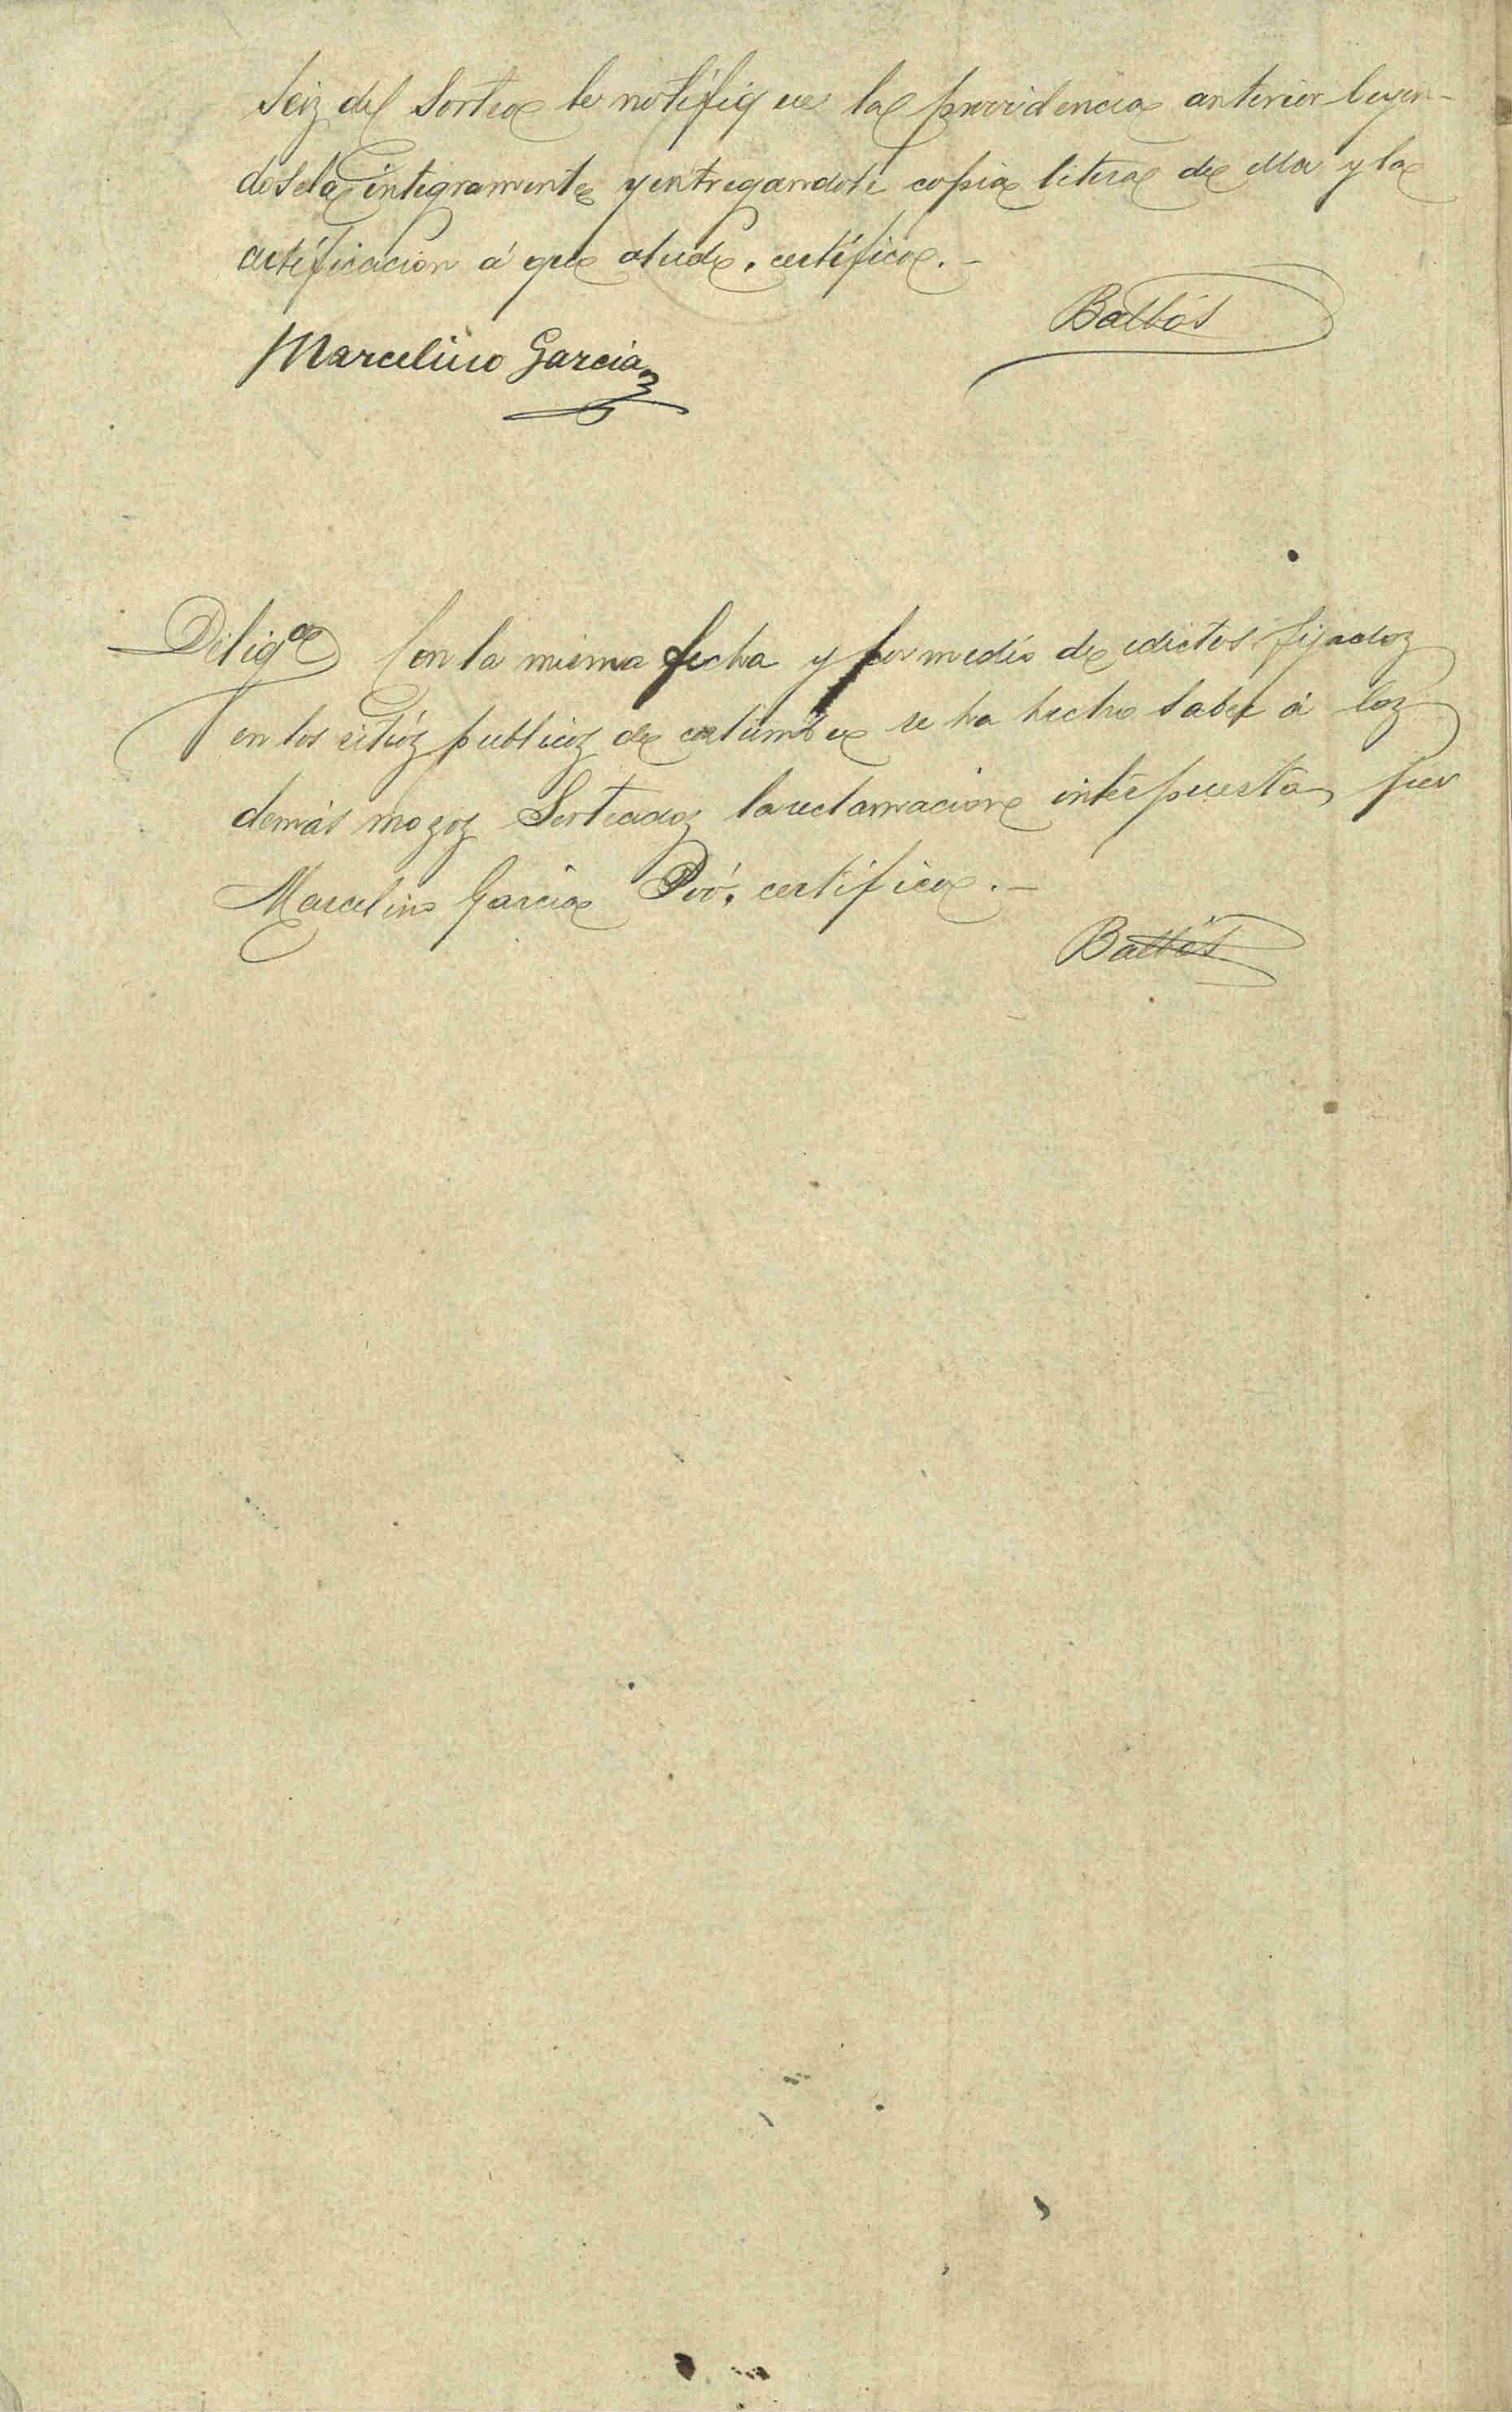 Seiz del Sorteo le notifiq ue la providencia anterior leyen-
dosela integramente y entregandole copia literal de ella y la
certificacion á que alude. certifico.-
Balbós
Marcelino Garcia
Diligª Con la misma fecha y por medio de edictos fijados
en los sitios publicos de costumbre se ha hecho saber á los
demás mozos Sorteados la reclamacion interpuesta por
Marcelino Garcia certifico.-
Balbós